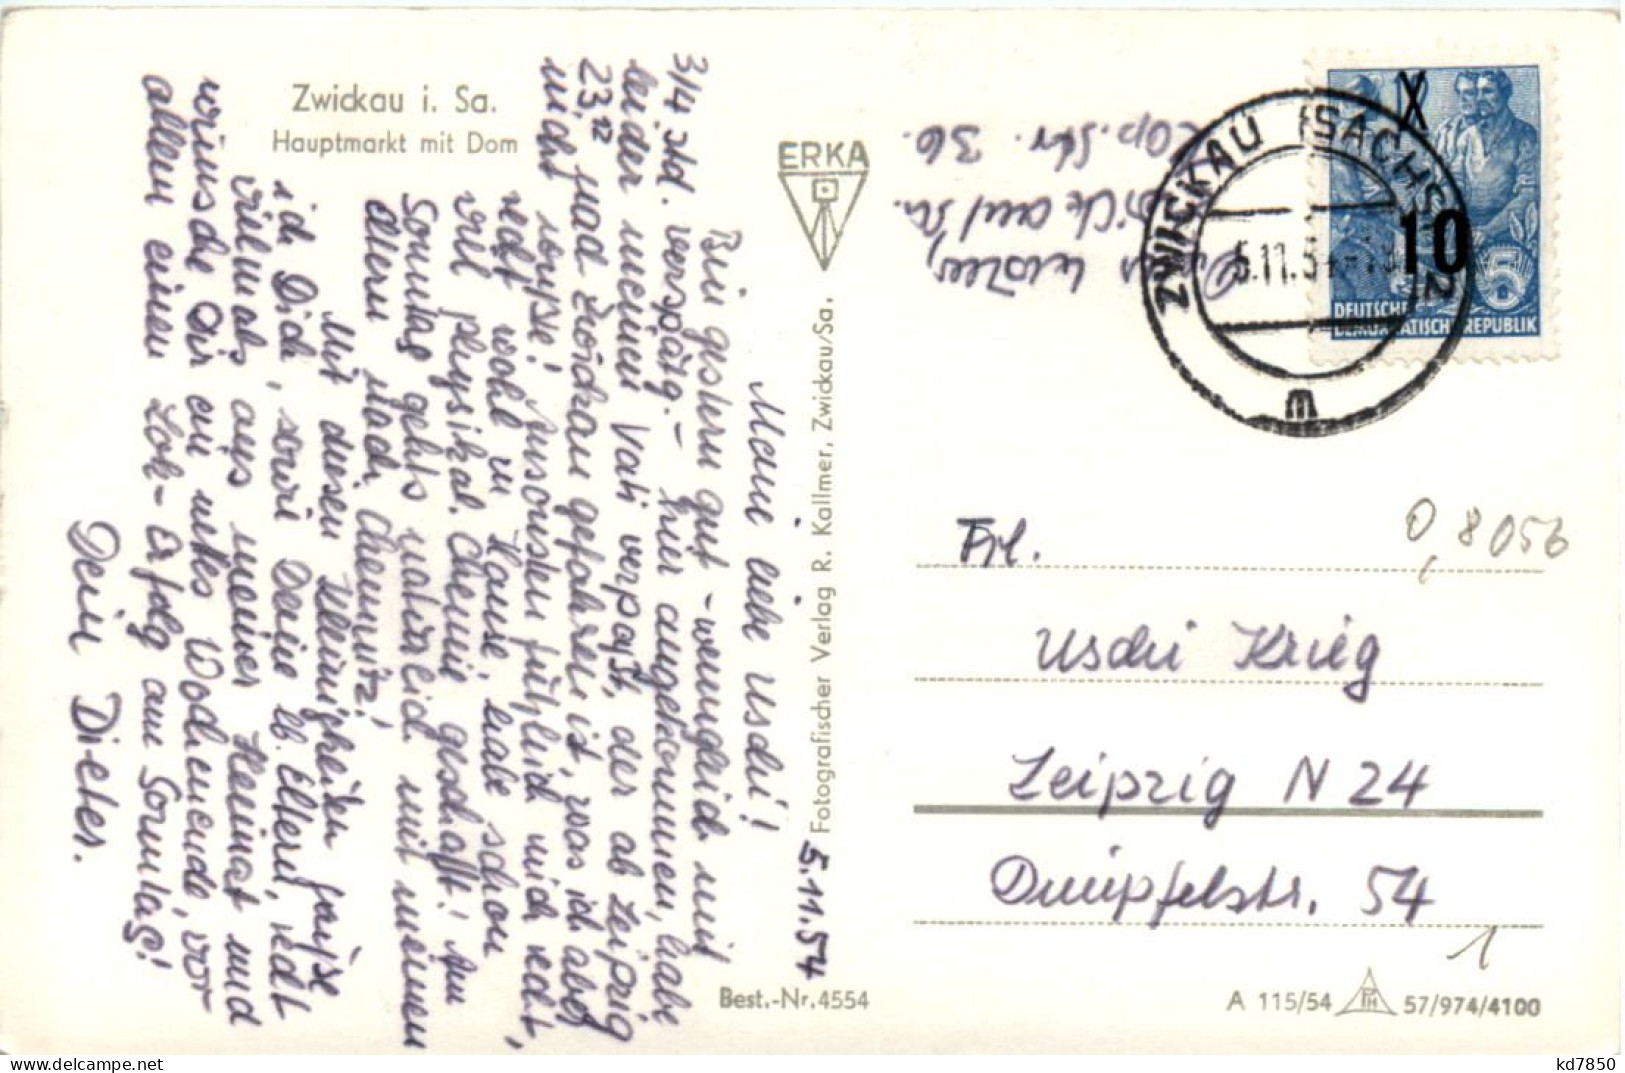 Zwickau i. Sa.
Hauptmarkt mit Dom
ERKA
Fotografischer Verlag R. Kallmer, Zwickau/Sa.
Best.-Nr. 4554
A 115/54
57/974/4100
ZWICKAU (SACHS) 2
5.11.54
m
X
10
5
DEUTSCHE
DEMOKRATISCHE REPUBLIK
auf Sa.
Str. 36.
5.11.54
Meine liebe Uschi!
Bin gestern gut - wenngleich mit
3/4 Std. Verspätg. - hier angekommen, habe
leider meinen Vati verpaßt, der ab Leipzig
23¹² grad Zwickau gefahren ist, was ich aber
nicht wußte! Ansonsten fühl ich mich recht,
recht wohl zu Hause, habe schon
viel physikal. Chemie geschafft! Am
Sonntag gehts natürlich mit meinen
Eltern nach Chemnitz!
Mit diesen Wenigkeiten grüße
ich Dich, sowie Deine lb. Eltern, recht
vielmals aus meiner Heimat und
wünsche Dir ein nettes Wochenende, vor
allem einen Lok-Erfolg am Sonntag!
Dein Dieter.
Frl.
Uschi Krieg
Leipzig N 24
Dimpfelstr. 54
0,8056
1
kd7850